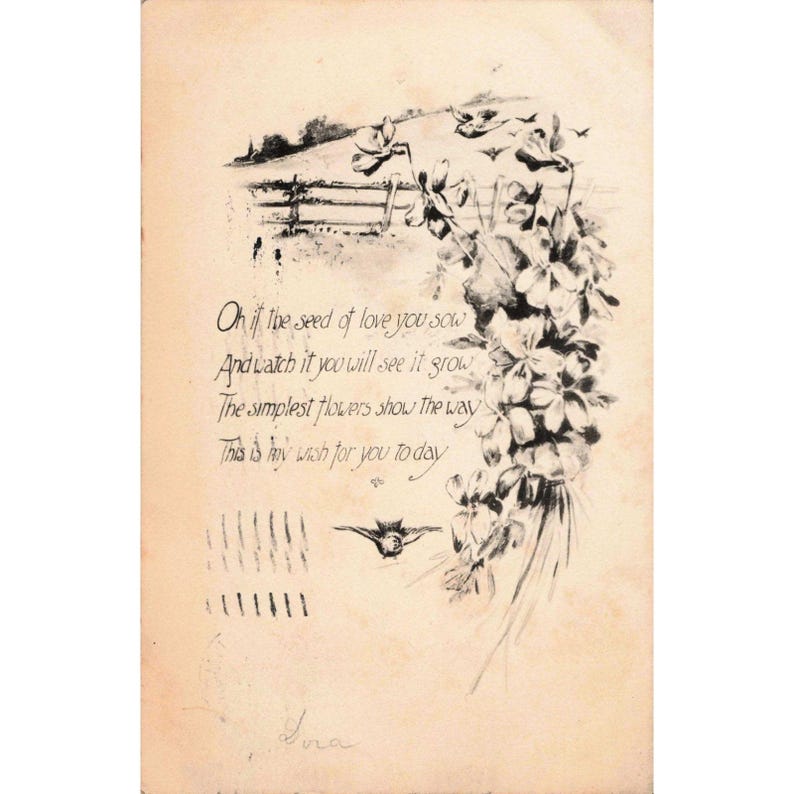 Oh if the seed of love you sow
And watch it you will see it grow
The simplest flowers show the way
This is my wish for you to day
Dora